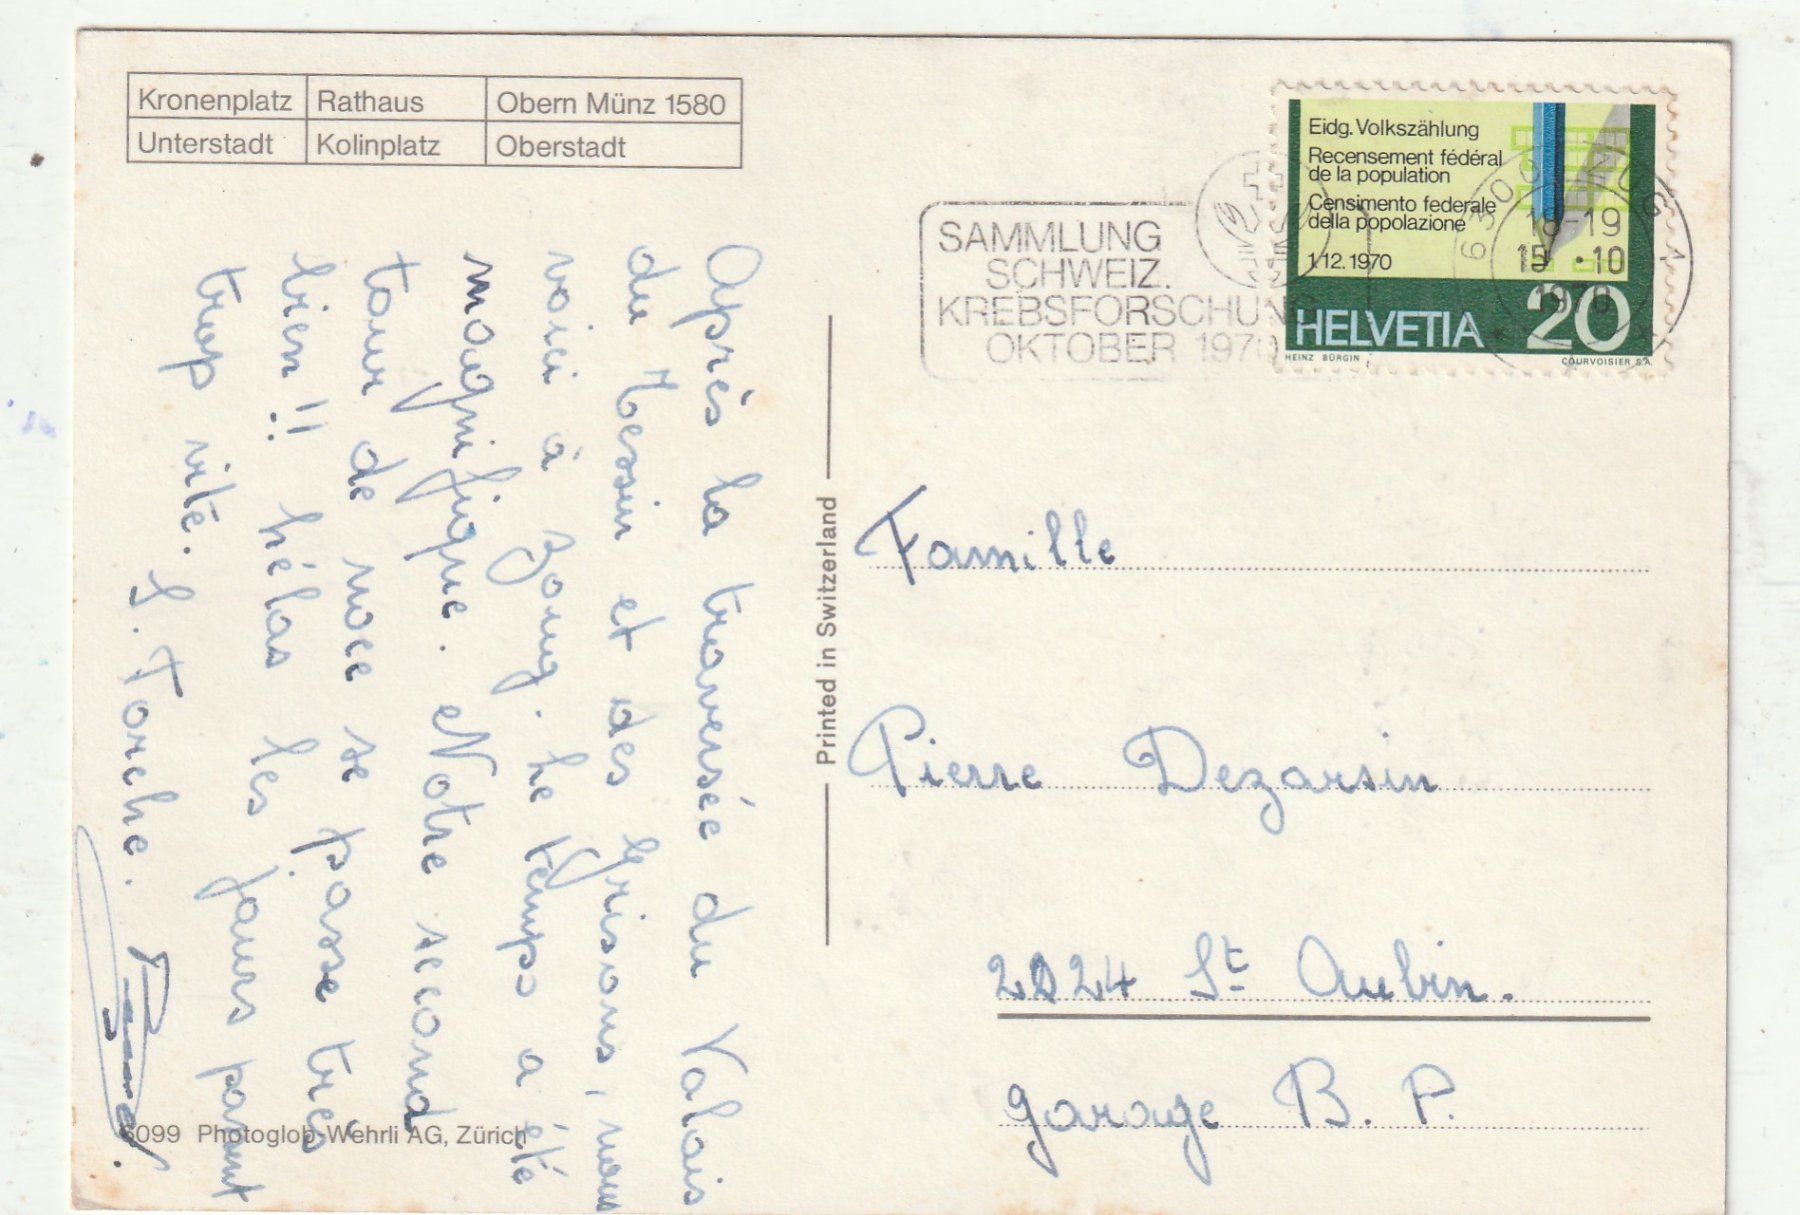 Kronenplatz Rathaus Obern Münz 1580
Unterstadt Kolinplatz Oberstadt
Après la traversée du Valais
du Tessin et des Grisons, nous
voici à Zoug. Le temps a été
magnifique. Notre second
tour de noce se passe très
bien !! hélas les jours passent
trop vite. Forche.
6099 Photoglob-Wehrli AG, Zürich
Printed in Switzerland
SAMMLUNG
SCHWEIZ.
KREBSFORSCHUNG
OKTOBER 1970
Eidg. Volkszählung
Recensement fédéral
de la population
Censimento federale
della popolazione
1.12.1970
HELVETIA 20
HEINZ BÜRGIN COURVOISIER S.A.
6300 ZUG 1
18-19
15.10
1970
Famille
Pierre Dezarsin
2024 St Aubin.
garage B. P.